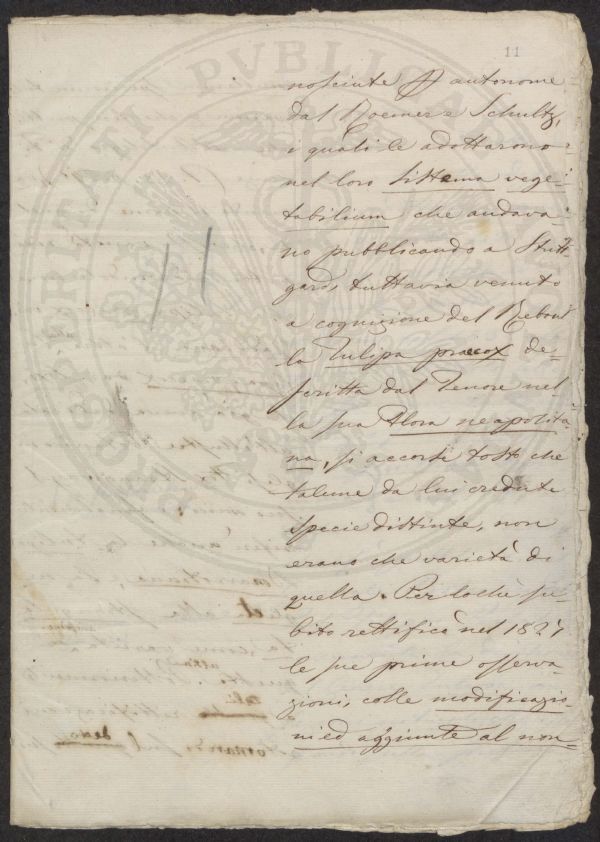 11
nosciute p autonome
dal Roemer e Schultz,
i quali le adottarono
nel loro Sistema vege-
tabilium che andava-
no pubblicando a Stutt-
gard, tuttavia venuto
a cognizione del Reboul
la Tulipa praecox de-
scritta dal Tenore nel-
la sua Flora neapolita-
na, si accorse tosto che
talune da lui credute
specie distinte, non
erano che varietà di
quella. Per lo chè su-
bito rettificò nel 1827
le sue prime osserva-
zioni, colle modificazio-
ni ed aggiunte al non-